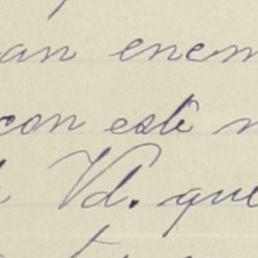 an enem
con este
Vd. que